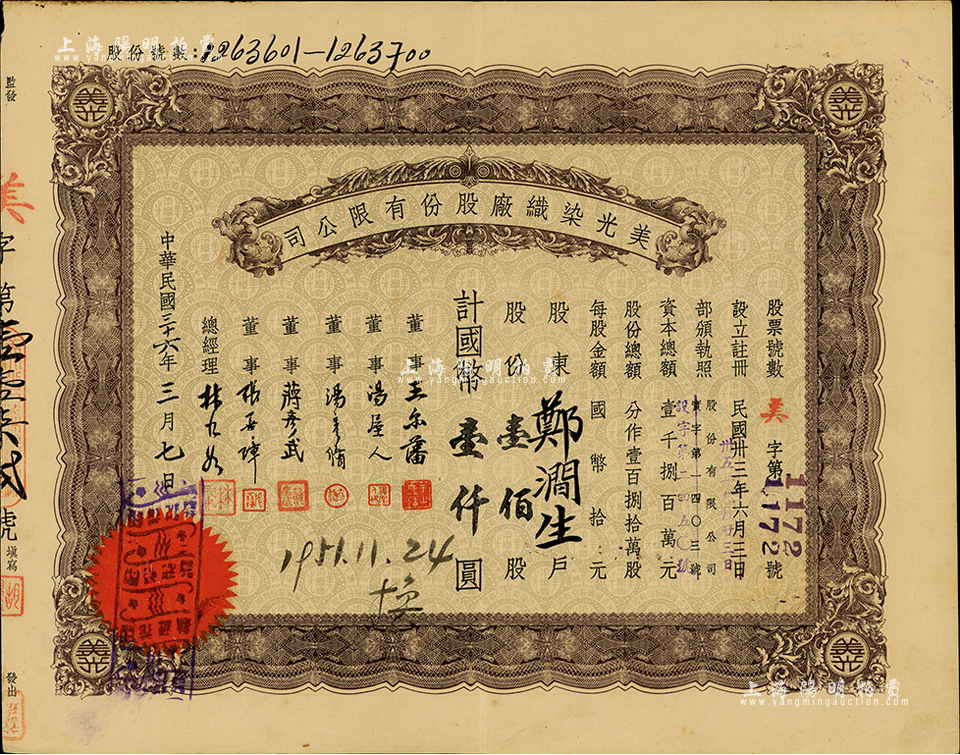 股份號數:1263601—1263700
美光染織廠股份有限公司
股票號數 美字第1172號
1172
設立註冊 民國卅三年六月三日
部頒執照 股份有限公司
設字第一四〇三號
資本總額 壹千捌百萬元
股份總額 分作壹百捌拾萬股
每股金額 國幣拾元
股東 鄭澗生 戶
股份 壹佰 股
計國幣 壹仟 圓
董事 王尔藩
董事 湯屋人
董事
董事 蔣彥武
董事
總經理
中華民國三十六年三月七日
1951.11.24
監發
美字第壹壹柒貳號
填寫
發出
美光
美光
美光
美光
上海陽明拍賣
www.yangmingauction.com
上海陽明拍賣
www.yangmingauction.com
上海陽明拍賣
www.yangmingauction.com